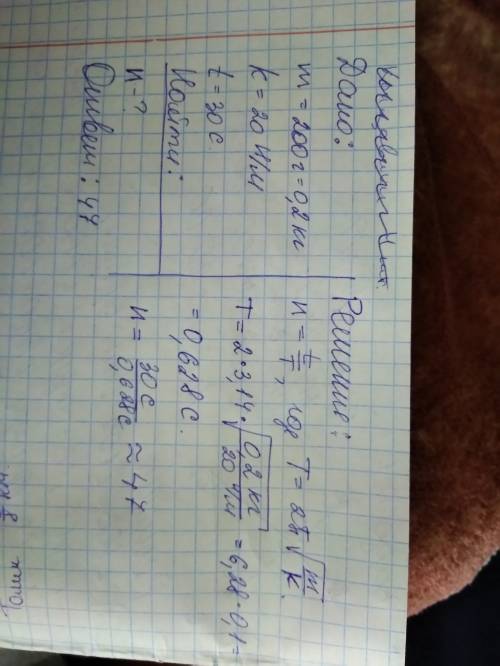 Дано:
m = 200г = 0,2 кг
k = 20 Н/м
t = 30 с
Найти:
n - ?
Ответ: 47
Решение:
n = t/T, где T = 2π√(m/k)
T = 2·3,14·√(0,2 кг/20 Н/м) = 6,28·0,1 =
= 0,628 с.
n = 30 с/0,628 с ≈ 47